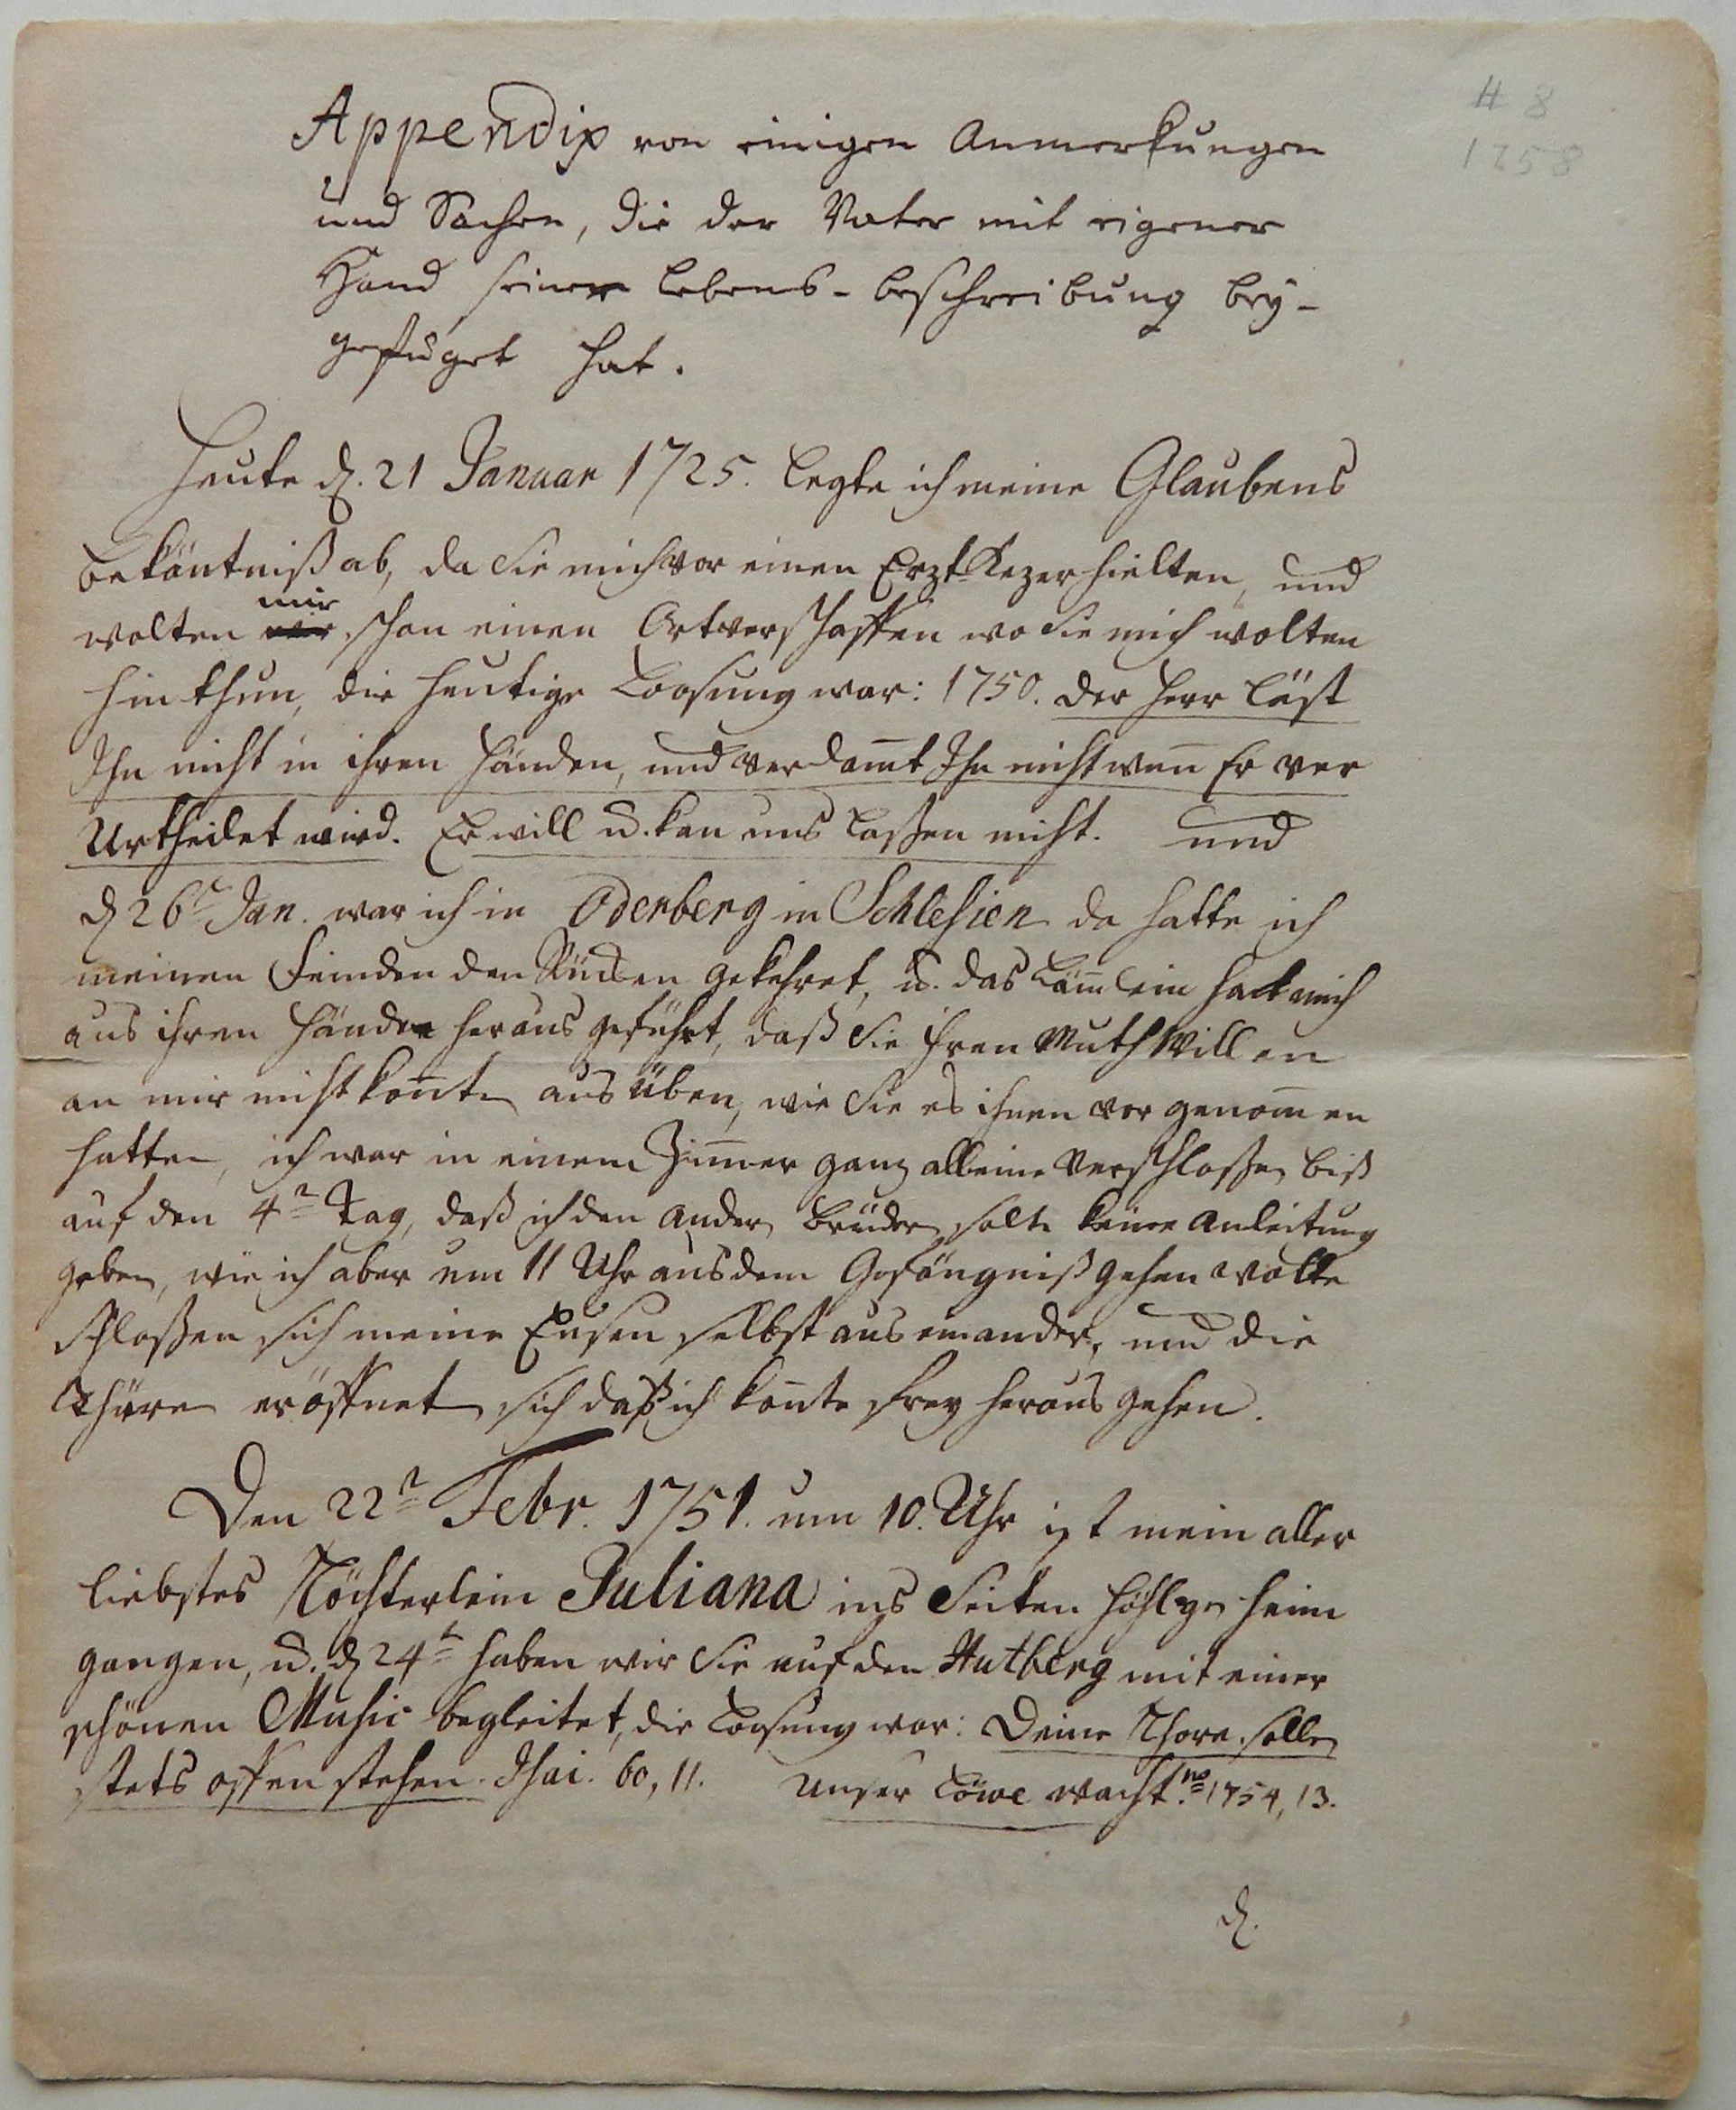 # 8
1758
Appendix von einigen Anmerkungen
und Sachen, die der Vater mit eigener
Hand seiner Lebens-beschreibung bey-
gefüget hat.
Heute d. 21 Januar 1725. legte ich meine Glaubens
bekäntniß ab, da Sie mich vor einen Erzt Kezer hielten, und
wolten mir schon einen Ort verschaffen wo Sie mich wolten
hinthun, die heutige Loosung war: 1750. der Herr läst
Ihn nicht in ihren Händen, und verdam̅t Ihn nicht wen̅ Er ver
Urtheilet wird. Er will u. kan uns laßen nicht. und
d 26t Jan. war ich in Oderberg in Schlesien da hatte ich
meinen Feinden den Rücken gekehret, u. das Läm̅lein hatt mich
aus ihren Händen heraus geführt, daß Sie ihren Muth Willen
an mir nicht kon̅ten ausüben, wie Sie es ihnen vor genom̅en
hatten, ich war in einem Zim̅er ganz alleine verschloßen biß
auf den 4n Tag, daß ich den andern Brüdern solte keine Anleitung
geben, wie ich aber um 11 Uhr aus dem Gefängniß gehen wolte
schloßen sich meine Eisen selbst aus einander, und die
Thüren eröffneten sich daß ich kon̅te frey heraus gehen.
Den 22n Febr. 1751. um 10. Uhr ist mein aller
liebstes Töchterlein Juliana ins Seiten Höhlgen heim
gangen, u. d 24t haben wir Sie auf den Hutberg mit einer
schönen Music begleitet, die Loosung war: Deine Thore sollen
stets offen stehen. Jsai. 60, 11. Unser Löwe wacht. no 1754, 13.
d.